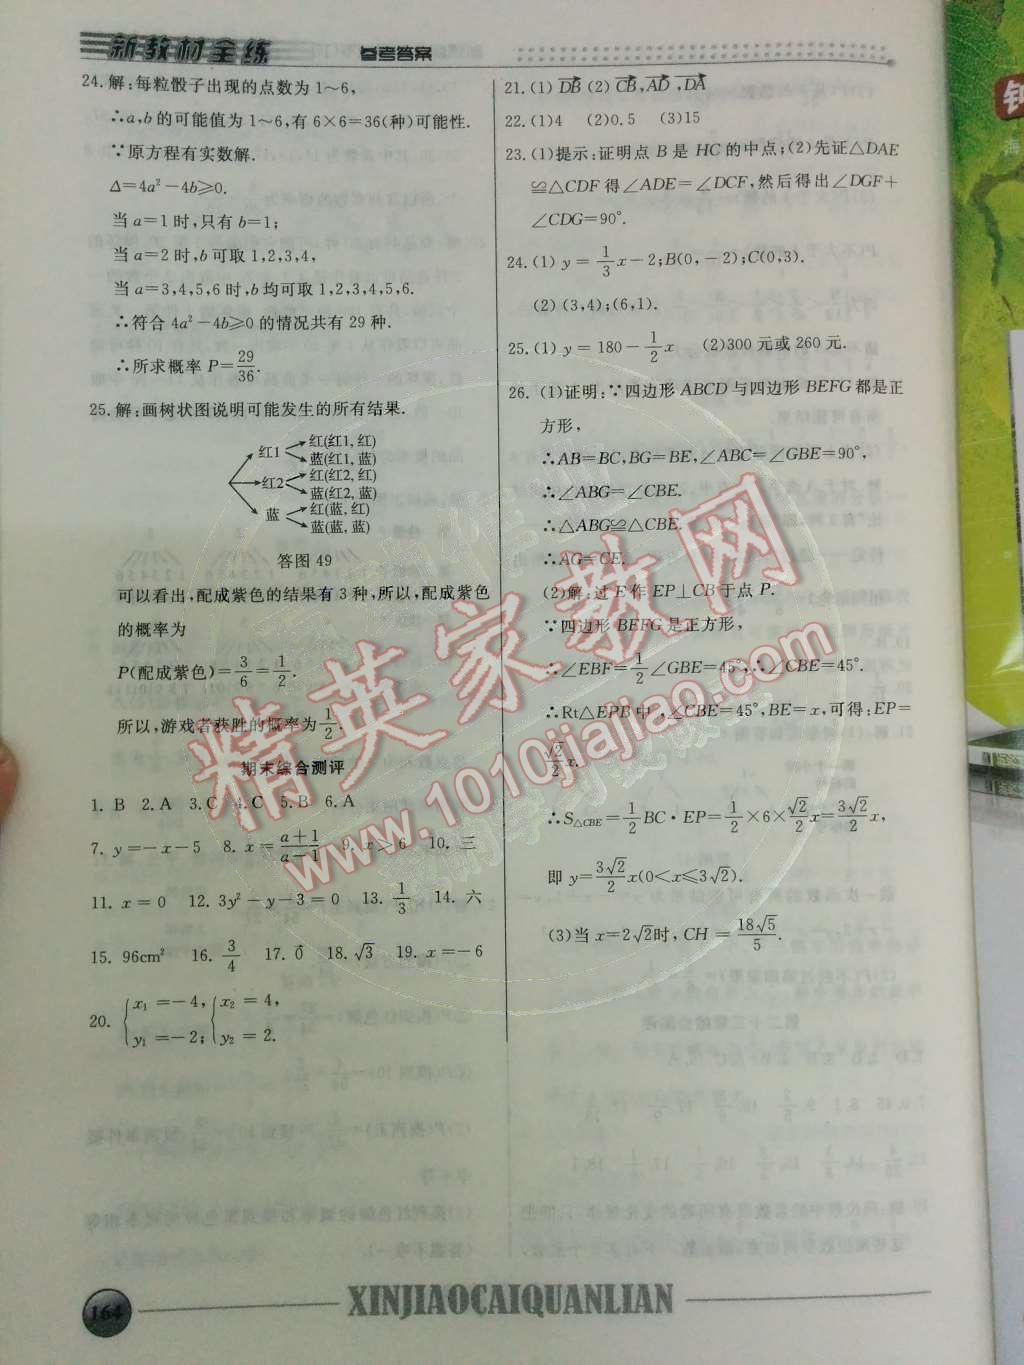 新教材全练
参考答案
24.解:每粒骰子出现的点数为1~6,
∴a,b的可能值为1~6,有6×6=36(种)可能性.
∵原方程有实数解.
Δ=4a²-4b≥0.
当a=1时,只有b=1;
当a=2时,b可取1,2,3,4,
当a=3,4,5,6时,b均可取1,2,3,4,5,6.
∴符合4a²-4b≥0的情况共有29种.
∴所求概率P=29/36.
25.解:画树状图说明可能发生的所有结果.
红1 红(红1,红)
蓝(红1,蓝)
红2 红(红2,红)
蓝(红2,蓝)
蓝 红(蓝,红)
蓝(蓝,蓝)
答图49
可以看出,配成紫色的结果有3种,所以,配成紫色
的概率为
P(配成紫色)=3/6=1/2.
所以,游戏者获胜的概率为1/2.
期末综合测评
1.B 2.A 3.C 4.C 5.B 6.A
7.y=-x-5 8.x=(a+1)/(a-1) 9.x≥6 10.三
11.x=0 12.3y²-y-3=0 13.1/3 14.六
15.96cm² 16.3/4 17.0⃗ 18.√3 19.x=-6
20.{x₁=-4, {x₂=4,
y₁=-2; y₂=2.
21.(1)DB⃗ (2)CB⃗,AD⃗,DA⃗
22.(1)4 (2)0.5 (3)15
23.(1)提示:证明点B是HC的中点;(2)先证△DAE
≌△CDF得∠ADE=∠DCF,然后得出∠DGF+
∠CDG=90°.
24.(1)y=1/3x-2;B(0,-2);C(0,3).
(2)(3,4);(6,1).
25.(1)y=180-1/2x (2)300元或260元.
26.(1)证明:∵四边形ABCD与四边形BEFG都是正
方形,
∴AB=BC,BG=BE,∠ABC=∠GBE=90°,
∴∠ABG=∠CBE.
∴△ABG≌△CBE.
∴AG=CE.
(2)解:过E作EP⊥CB于点P.
∵四边形BEFG是正方形,
∴∠EBF=1/2∠GBE=45°,∴∠CBE=45°.
∴Rt△EPB中,∠CBE=45°,BE=x,可得:EP=
√2/2x.
∴S△CBE=1/2BC·EP=1/2×6×√2/2x=3√2/2x,
即y=3√2/2x(0<x≤3√2).
(3)当x=2√2时,CH=18√5/5.
精英家教网
www.1010jiajiao.com
164
XINJIAOCAIQUANLIAN